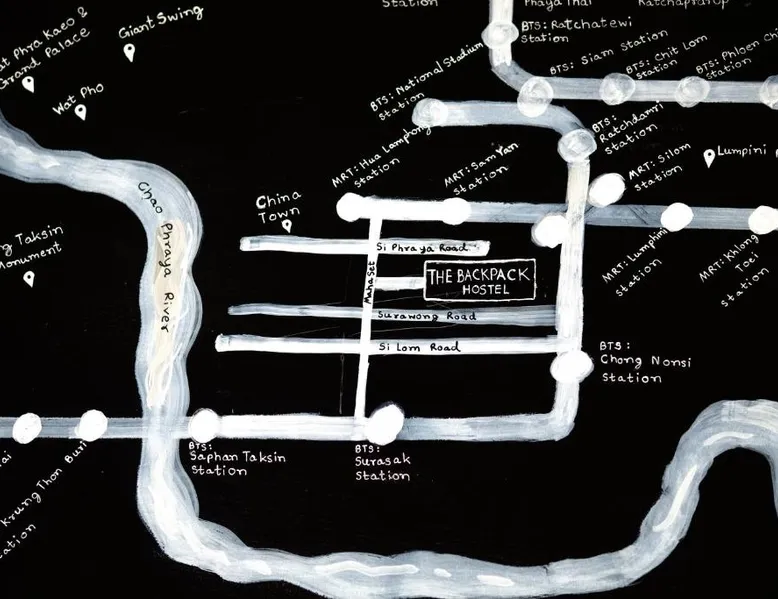 Station
Phaya Thai
Ratchaprasop
at Phra Kaeo &
Grand Palace
Giant Swing
Wat Pho
BTS: Ratchatewi
Station
BTS: Siam Station
BTS: Chit Lom
Station
BTS: Phloen Chi
BTS: National Stadium
Station
BTS:
Ratchdamri
Station
MRT: Hua Lamphong
Station
MRT: Sam Yan
Station
MRT: Silom
Station
Lumpini
Chao Phraya River
China
Town
g Taksin
Monument
Si Phraya Road
Maha Set
THE BACKPACK
HOSTEL
Surawong Road
Si Lom Road
MRT: Lumphini
Station
MRT: Khlong
Toei
Station
BTS:
Chong Nonsi
Station
BTS:
Saphan Taksin
Station
BTS:
Surasak
Station
ai
Krung Thon Buri
ation